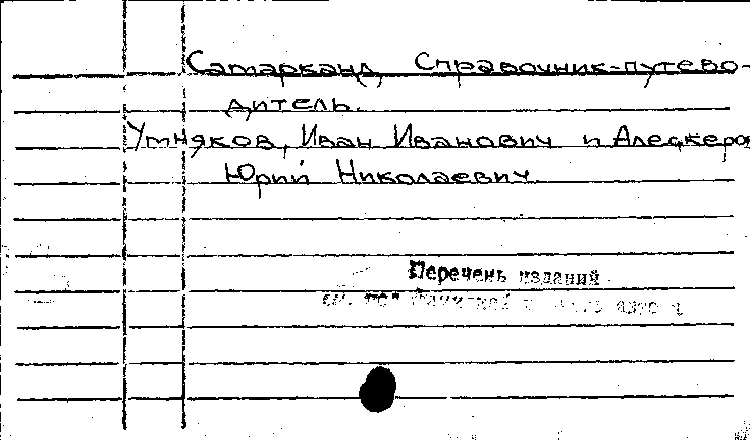 Самарканд, Справочник-путево-
дитель.
Умняков, Иван Иванович и Алескеров
Юрий Николаевич.
Перечень изданий
см. под фамилией